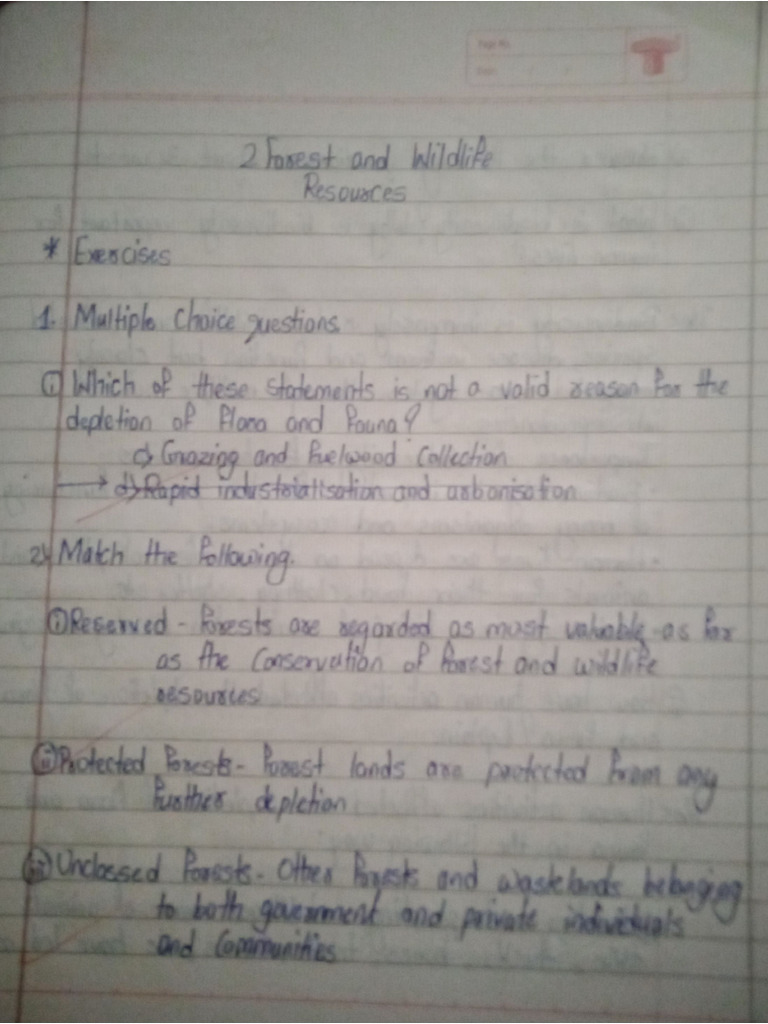 Page No.
Date:
2 Forest and Wildlife
Resources
* Exercises
1. Multiple Choice questions
① Which of these statements is not a valid reason for the
depletion of flora and fauna?
c) Grazing and fuelwood Collection
→ d) Rapid industrialisation and urbanisation
2) Match the following.
① Reserved - forests are regarded as most valuable as far
as the Conservation of forest and wildlife
resources
ⓘⓘ Protected forests - forest lands are protected from any
further depletion
ⓘⓘⓘ Unclassed forests - Other forests and wastelands belonging
to both government and private individuals
and Communities